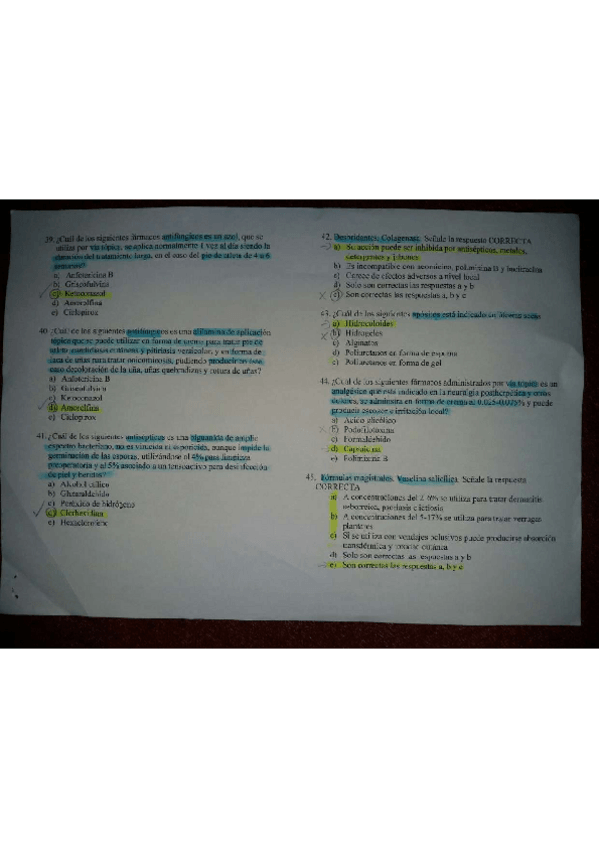 39. ¿Cuál de los siguientes fármacos antifúngicos es un azol, que se
utiliza por vía tópica, se aplica normalmente 1 vez al día siendo la
duración del tratamiento larga, en el caso del pie de atleta de 4 a 6
semanas?
a) Anfotericina B
b) Griseofulvina
c) Ketoconazol
d) Amorolfina
e) Ciclopirox
40. ¿Cuál de los siguientes antifúngicos es una alilamina de aplicación
tópica que se puede utilizar en forma de crema para tratar pie de
atleta, candidiasis cutáneas y pitiriasis versicolor, y en forma de
laca de uñas para tratar onicomicosis, pudiendo producir en este
caso decoloración de la uña, uñas quebradizas y rotura de uñas?
a) Anfotericina B
b) Griseofulvina
c) Ketoconazol
d) Amorolfina
e) Ciclopirox
41. ¿Cuál de los siguientes antisépticos es una biguanida de amplio
espectro bacteriano, no es virucida ni esporicida, aunque impide la
germinación de las esporas, utilizándose al 4% para limpieza
preoperatoria y el 5% asociado a un tensioactivo para desinfección
de piel y heridas?
a) Alcohol etílico
b) Glutaraldehido
c) Peróxido de hidrógeno
d) Clorhexidina
e) Hexaclorofeno
42. Desbridantes. Colagenasa. Señale la respuesta CORRECTA
a) Su acción puede ser inhibida por antisépticos, metales,
detergentes y jabones
b) Es incompatible con polimixina B y bacitracina
c) Carece de efectos adversos a nivel local
d) Solo son correctas las respuestas a y b
e) Son correctas las respuestas a, b y c
43. ¿Cuál de los siguientes apósitos está indicado en
a) Hidrocoloides
b) Hidrogeles
c) Alginatos
d) Poliuretanos en forma de espuma
e) Poliuretanos en forma de gel
44. ¿Cuál de los siguientes fármacos administrados por vía tópica es un
analgésico que está indicado en la neuralgia postherpética y otros
dolores, se administra en forma de crema al 0.025-0.075% y puede
producir escozor e irritación local?
a) Acido
b) Podofilotoxina
c) Formaldehido
d) Capsaicina
e) Polimixina B
45. Fórmulas magistrales. Vaselina salicílica. Señale la respuesta
CORRECTA
a) A concentraciones del 2-6% se utiliza para tratar dermatitis
seborreica, psoriasis e ictiosis
b) A concentraciones del 5-17% se utiliza para tratar verrugas
plantares
c) Si se utiliza con vendajes oclusivos puede producirse absorción
transdérmica y cutánea
d) Solo son correctas las respuestas a y b
e) Son correctas las respuestas a, b y c